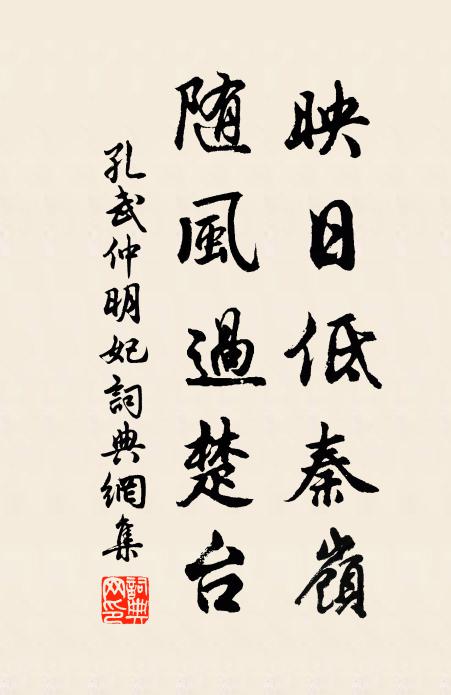 映日低秦嶺
随風過楚台
孔武仲明妃詞典網集
詞典网印